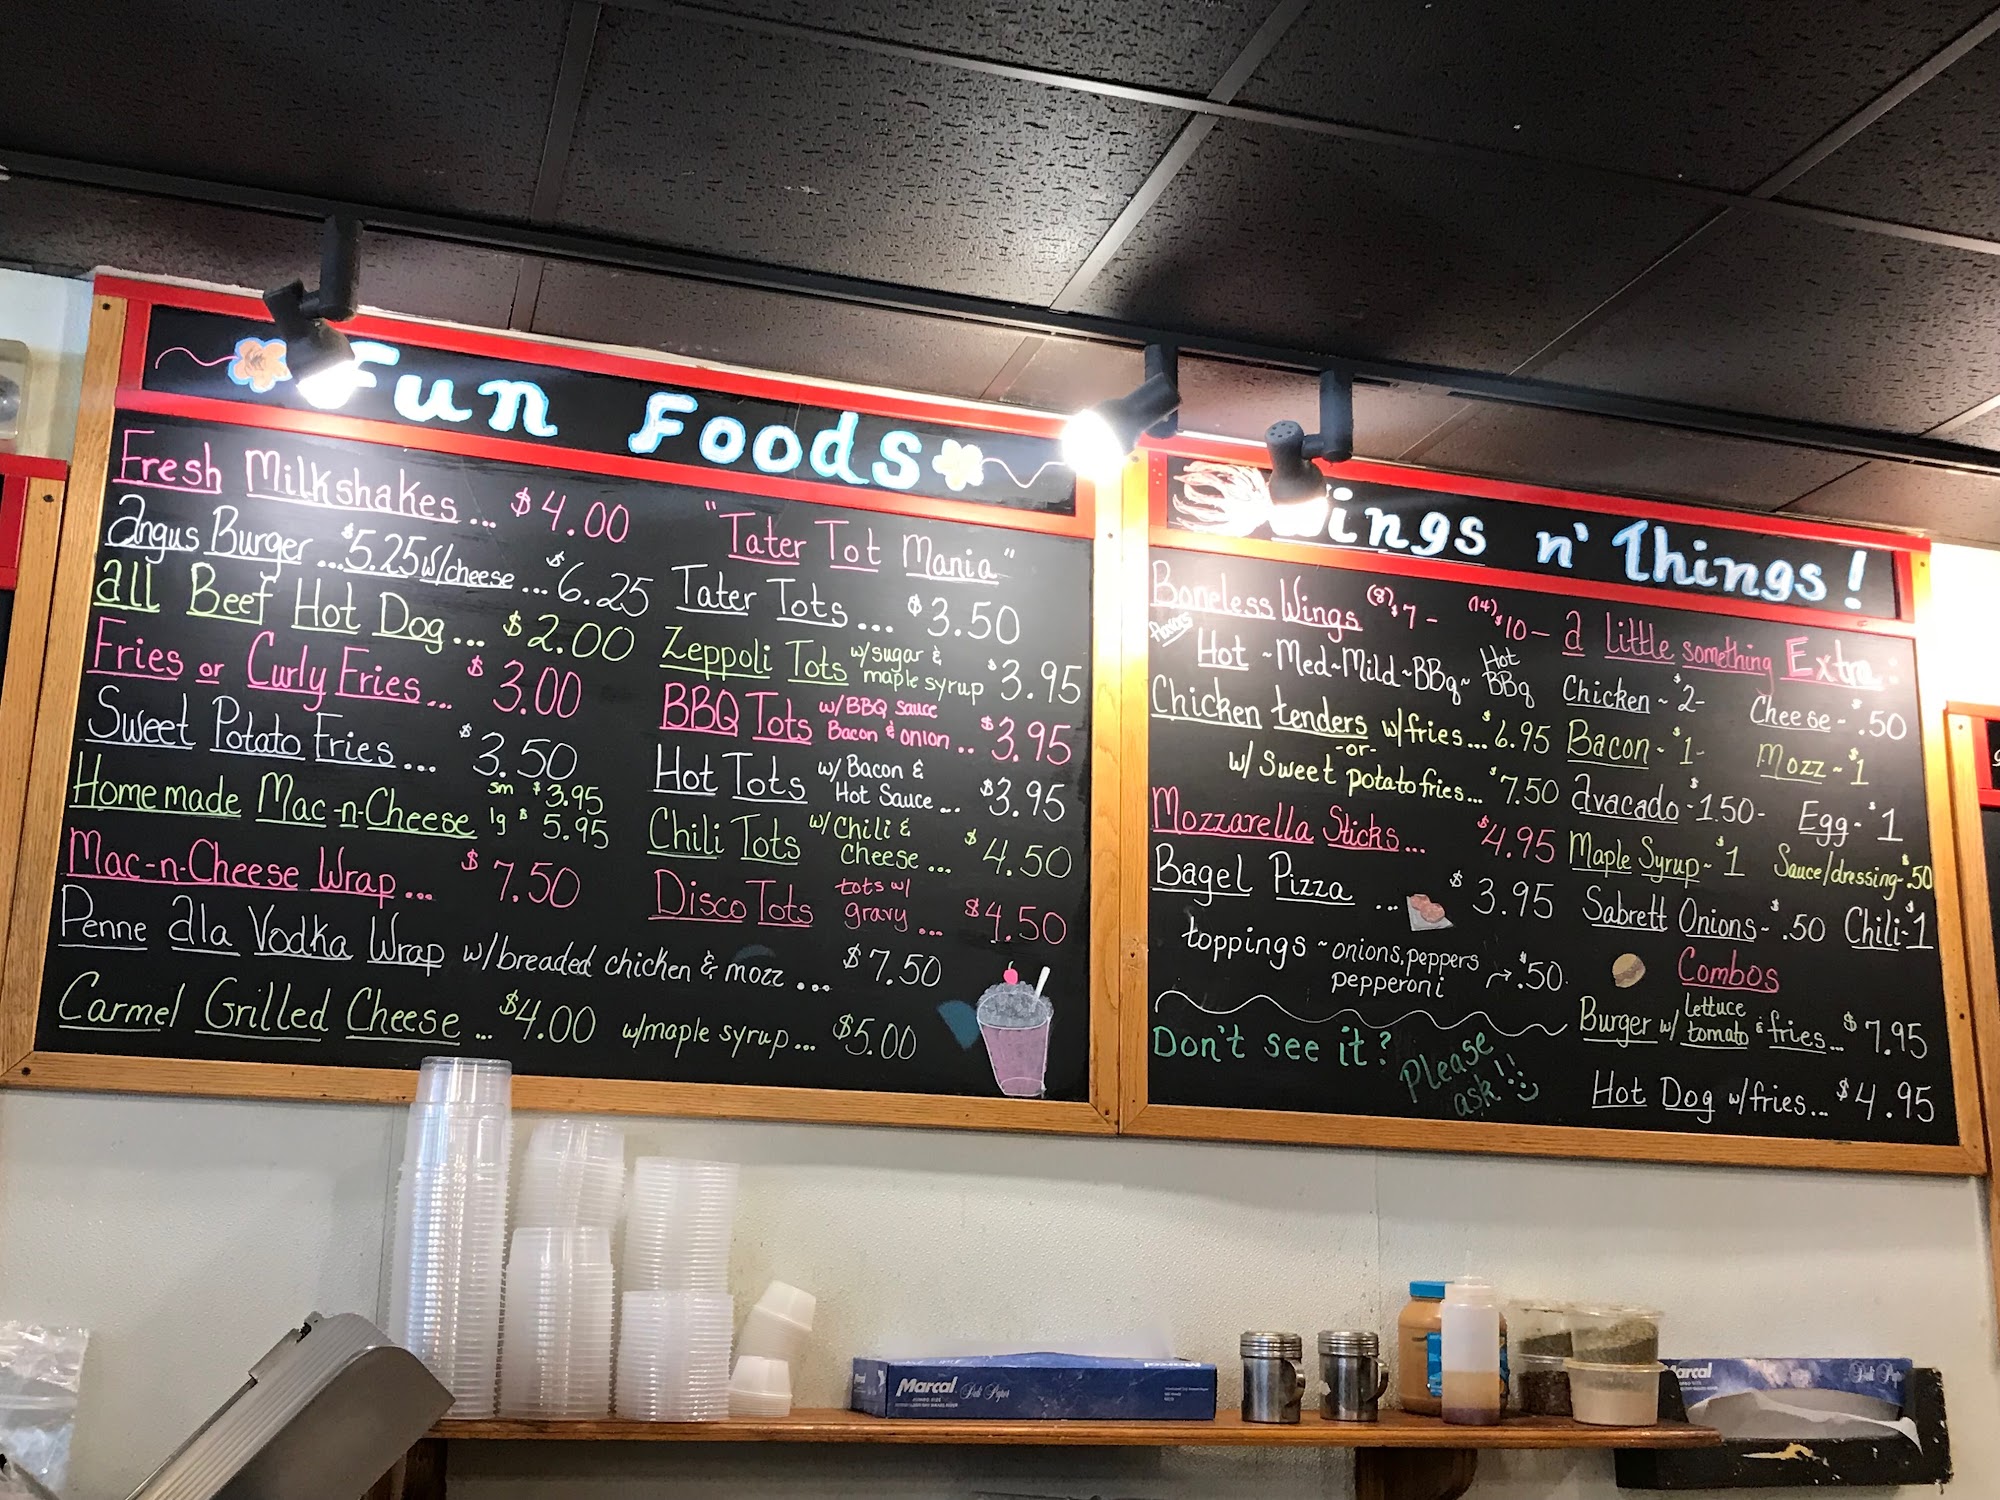 Fun Foods
Fresh Milkshakes... $4.00
Angus Burger... $5.25 w/cheese... $6.25
all Beef Hot Dog... $2.00
Fries or Curly Fries... $3.00
Sweet Potato Fries... $3.50
Homemade Mac-n-Cheese sm $3.95
lg $5.95
Mac-n-Cheese Wrap... $7.50
Penne ala Vodka Wrap w/breaded chicken & mozz... $7.50
Carmel Grilled Cheese... $4.00 w/maple syrup... $5.00
"Tater Tot Mania"
Tater Tots... $3.50
Zeppoli Tots w/sugar &
maple syrup $3.95
BBQ Tots w/BBQ sauce
Bacon & onion.. $3.95
Hot Tots w/Bacon &
Hot Sauce... $3.95
Chili Tots w/Chili &
Cheese... $4.50
Disco Tots tots w/
gravy... $4.50
Wings n' Things!
Boneless Wings (8) $7- (14) $10-
flavors Hot ~Med~Mild~BBq~ Hot
BBq
Chicken tenders w/fries... $6.95
-or-
w/ Sweet potato fries... $7.50
Mozzarella Sticks... $4.95
Bagel Pizza ... $3.95
toppings ~ onions, peppers
pepperoni → $.50
Don't see it? Please
ask!!
a little something Extra:
Chicken ~ $2- Cheese - $.50
Bacon - $1- Mozz ~ $1
avacado - $1.50- Egg - $1
Maple Syrup ~ $1 Sauce/dressing - $.50
Sabrett Onions - $.50 Chili - $1
Combos
Burger w/ lettuce
tomato & fries... $7.95
Hot Dog w/fries... $4.95
Marcal Deli Paper
Marcal Deli Paper